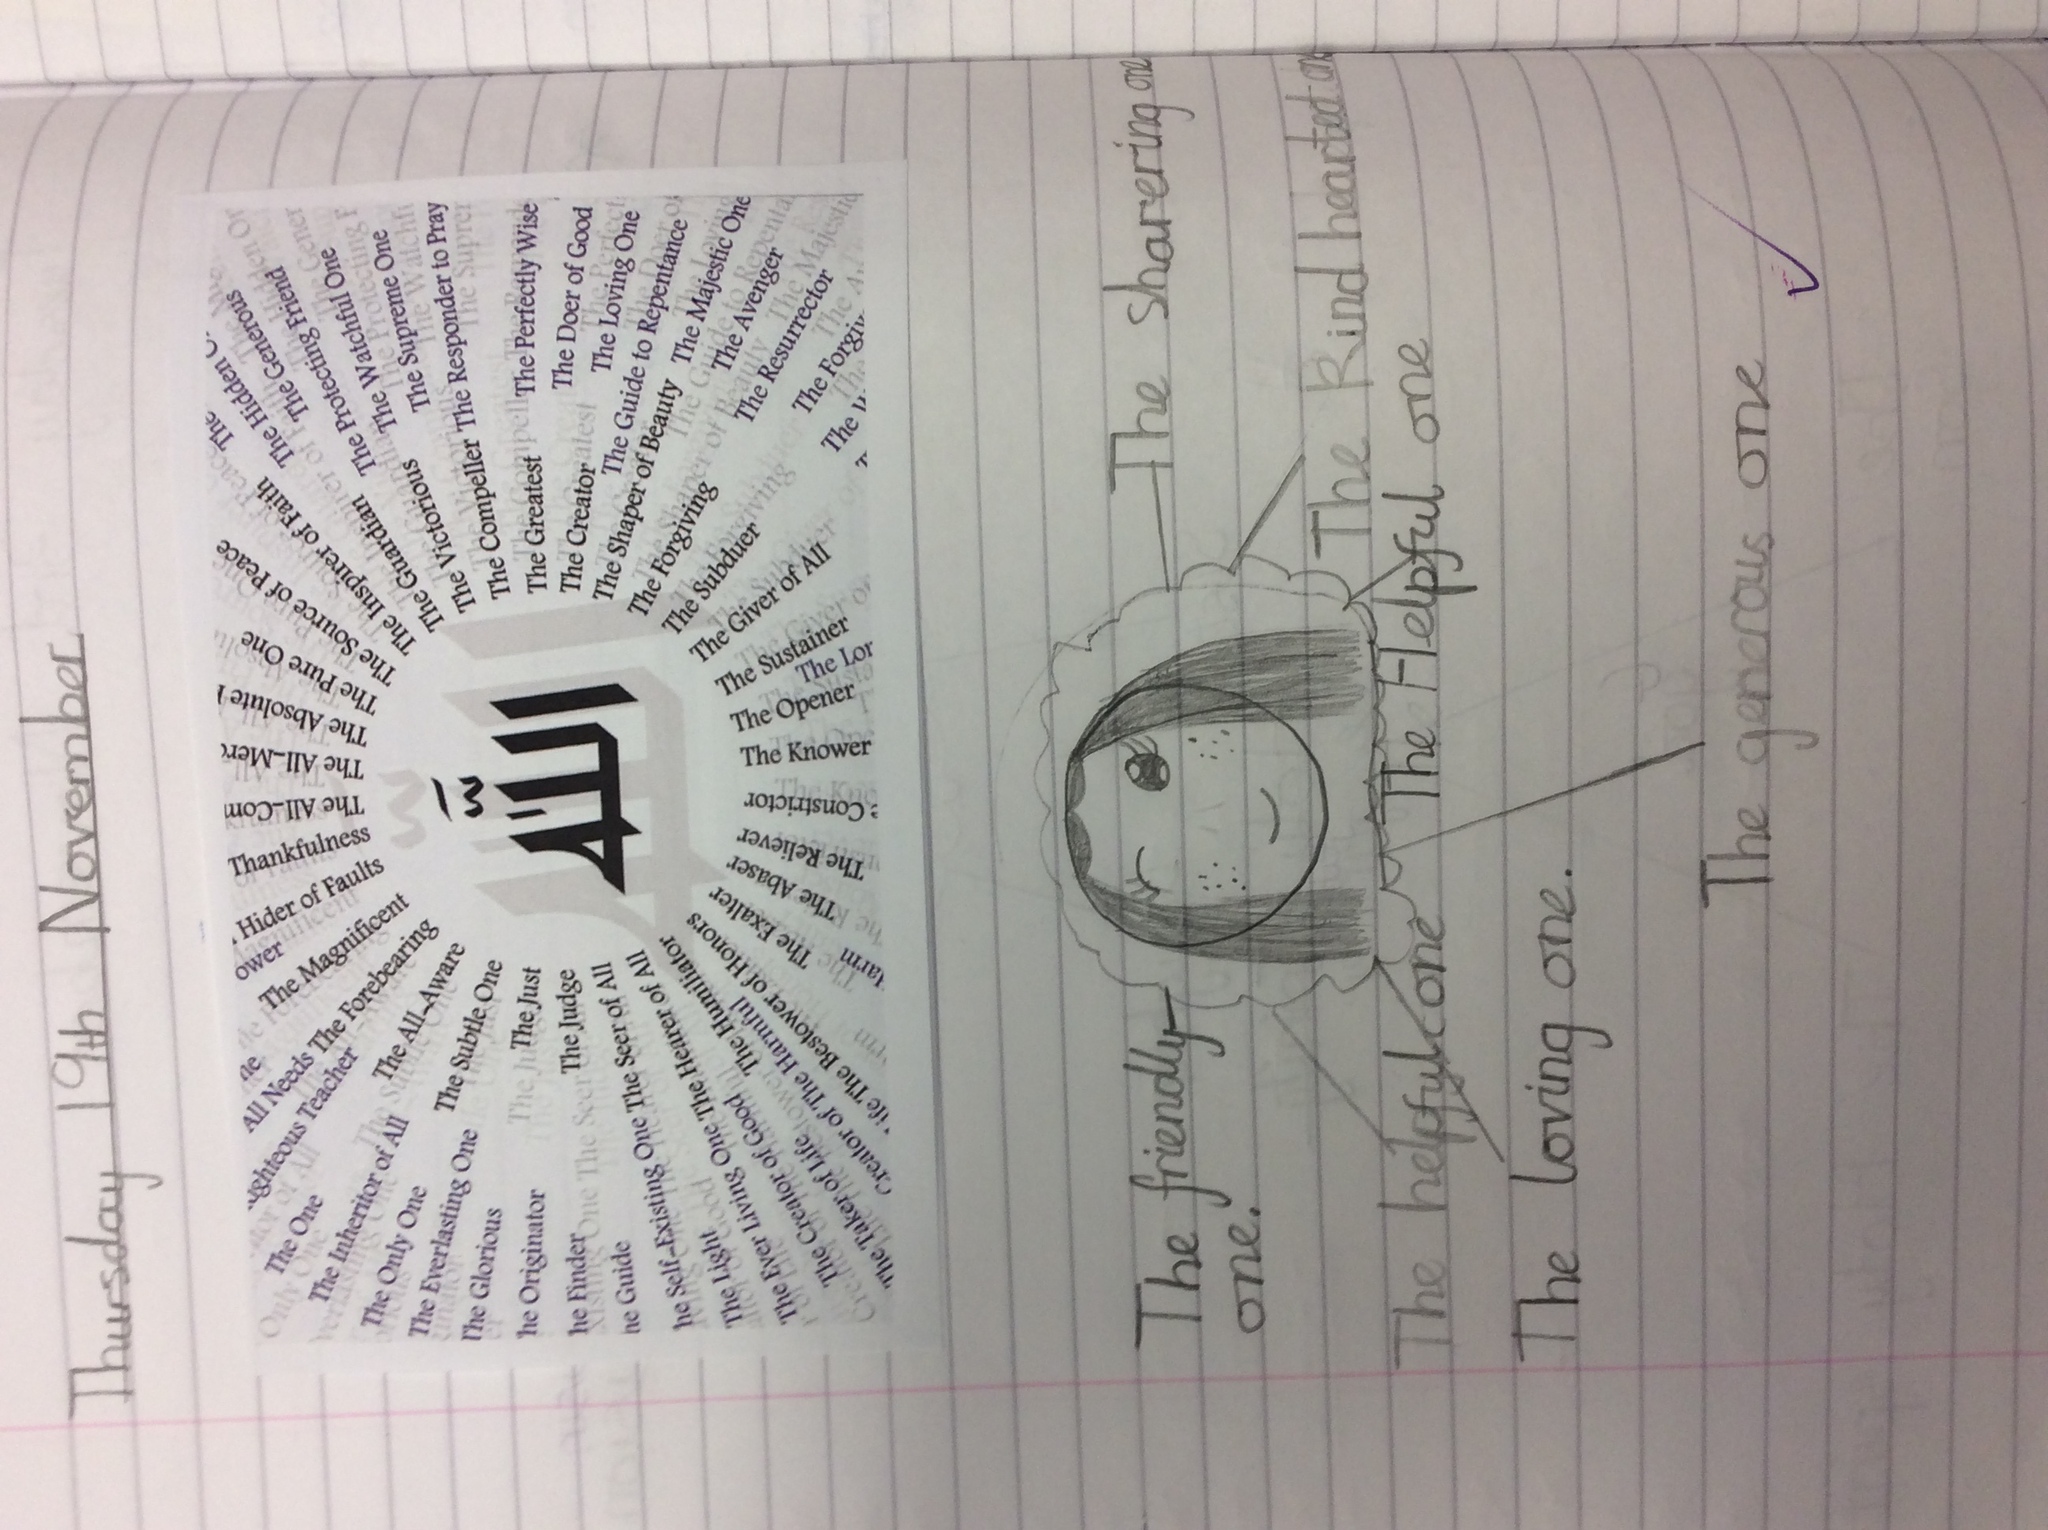 Thursday 19th November
The Hidden
The Generous
The Protecting Friend
The Watchful One
The Supreme One
The Responder to Pray
The Perfectly Wise
The Doer of Good
The Loving One
The Guide to Repentance
The Majestic One
The Avenger
The Resurrector
The Forgiv
The Source of Peace
The Inspirer of Faith
The Guardian
The Victorious
The Compeller
The Greatest
The Creator
The Shaper of Beauty
The Forgiving
The Subduer
The Giver of All
The Sustainer
The Lor
The Opener
The Knower
Constrictor
The Reliever
The Abaser
The Exalter
The Bestower of Honors
The Humiliator
The Hearer of All
The Seer of All
The Judge
The Just
The Subtle One
The All-Aware
The Forebearing
The Magnificent
Hider of Faults
Thankfulness
The All-Com
The All-Merc
The Absolute
The Pure One
ower
All Needs
ughteous Teacher
The One
The Inheritor of All
The Only One
The Everlasting One
The Glorious
he Originator
he Finder
he Guide
he Self-Existing One
The Light
The Ever Living One
The Creator of Good
The Taker of Life
Creator of The Harmful
ife
arm
الله
The friendly
one.
The sharering one
The Kind hearted one
The helpful one
The Helpful one
The loving one.
The generous one